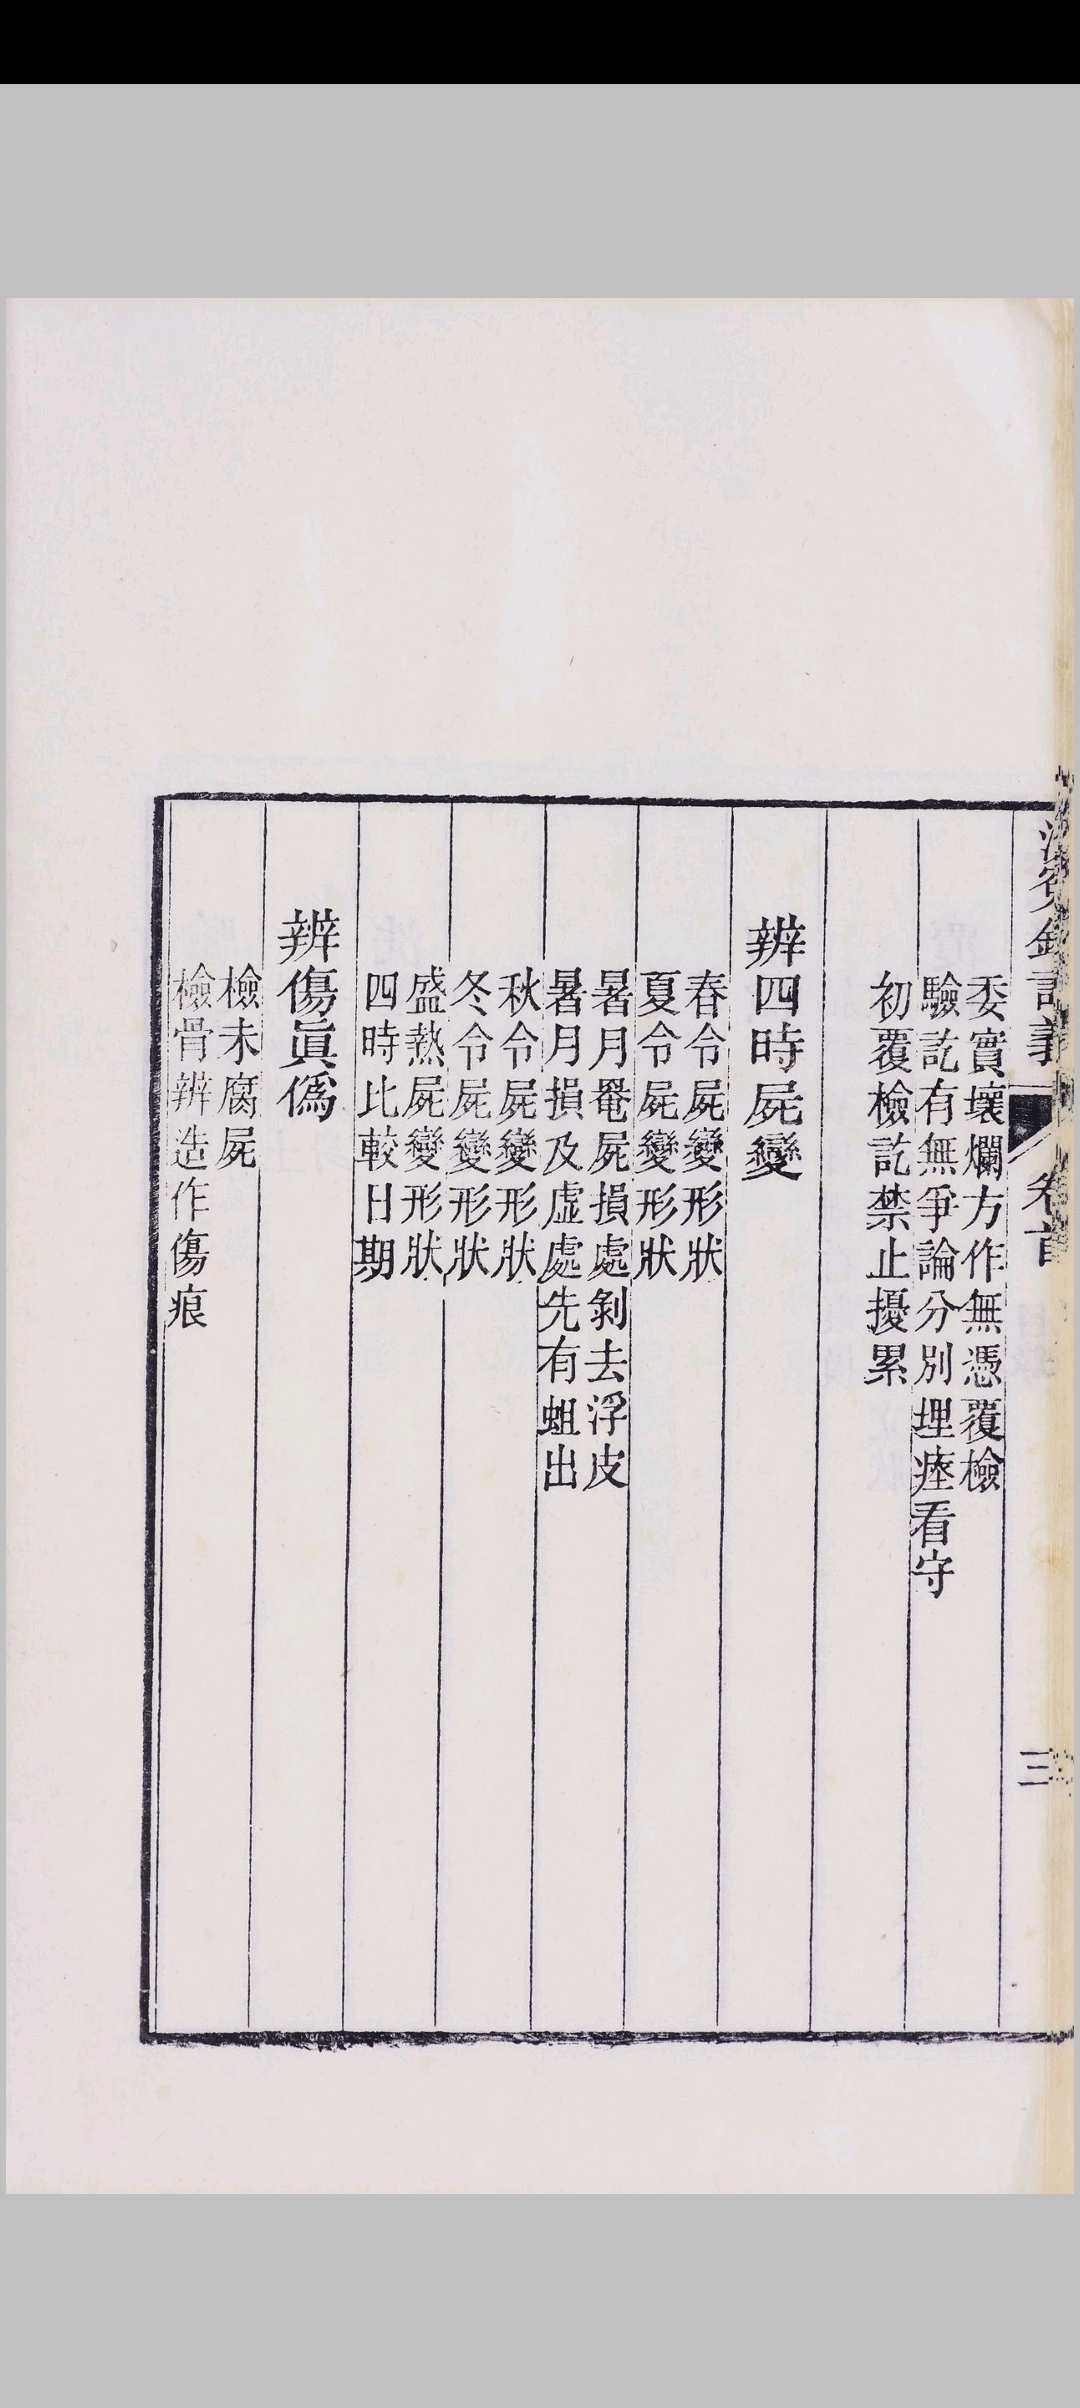 洗冤錄詳義
卷首
三
委實壞爛方作無憑覆檢
驗訖有無爭論分別埋瘞看守
初覆檢訖禁止擾累
辨四時屍變
春令屍變形狀
夏令屍變形狀
暑月罨屍損處剝去浮皮
暑月損及虛處先有蛆出
秋令屍變形狀
冬令屍變形狀
盛熱屍變形狀
四時比較日期
辨傷眞僞
檢未腐屍
檢骨辨造作傷痕